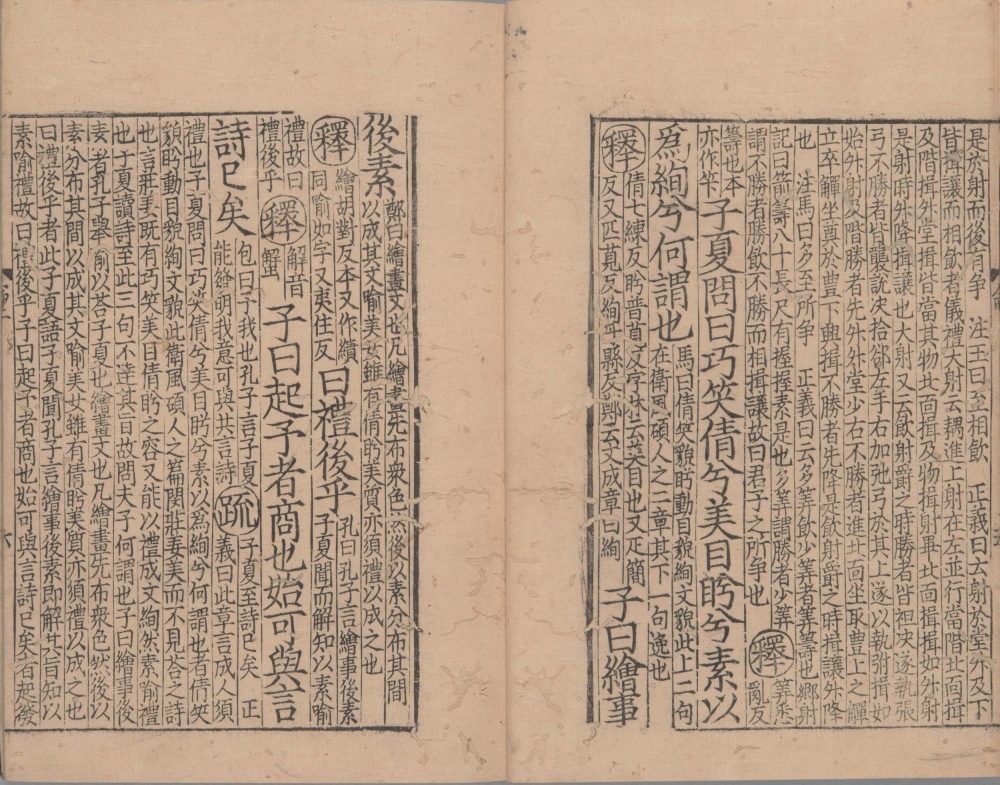 是於射而後有爭　注王曰至相飲　正義曰云射於堂升及下
皆揖讓而相飲者儀禮大射云耦進上射在左並行當階北面揖
及階揖升堂揖皆當其物北面揖及物揖射畢北面揖揖如升射
是射時升降揖讓也大射又云飲射爵之時勝者皆袒決遂執張
弓不勝者皆襲說決拾郤左手右加弛弓於其上遂以執弣揖如
始升射及階勝者先升升堂少右不勝者進北面坐取豐上之觶
立卒觶坐奠於豐下興揖不勝者先降是飲射爵之時揖讓升降
也　注馬曰多至所爭　正義曰云多筭飲少筭者筭籌也鄉射
記曰箭籌八十長尺有握握素是也多筭謂勝者少筭
謂不勝者勝飲不勝而相揖讓故曰君子之所爭也　釋　筭悉亂反
籌也本亦作竿　子夏問曰巧笑倩兮美目盼兮素以
為絢兮何謂也　馬曰倩笑貌盼動目貌絢文貌此上二句在衛風碩人之二章其下一句逸也
釋　倩七練反盼普莧反字林云目也又匹簡反又匹莧反絢呼縣反鄭云文成章曰絢　子曰繪事
後素　鄭曰繪畫文也凡繪畫先布衆色然後以素分布其間以成其文喻美女雖有倩盼美質亦須禮以成之也
釋　繪胡對反本又作繢同喻如字又夷住反　曰禮後乎　孔曰孔子言繪事後素子夏聞而解知以素喻
禮故曰禮後乎　釋　解音蟹　子曰起予者商也始可與言
詩已矣　包曰予我也孔子言子夏能發明我意可與共言詩　疏　子夏至詩已矣　正義曰此章言成人須
禮也子夏問曰巧笑倩兮美目盼兮素以為絢兮何謂也者倩笑
貌盼動目貌絢文貌此衛風碩人之篇閔莊姜美而不見荅之詩
也言莊姜既有巧笑美目倩盼之容又能以禮成文絢然素喻禮
也子夏讀詩至此三句不達其旨故問夫子何謂也子曰繪事後
素者孔子舉喻以荅子夏也繪畫文也凡繪畫先布衆色然後以
素分布其間以成其文喻美女雖有倩盼美質亦須禮以成之也
曰禮後乎者此子夏語子夏聞孔子言繪事後素即解其旨知以
素喻禮故曰禮後乎子曰起予者商也始可與言詩已矣者起發